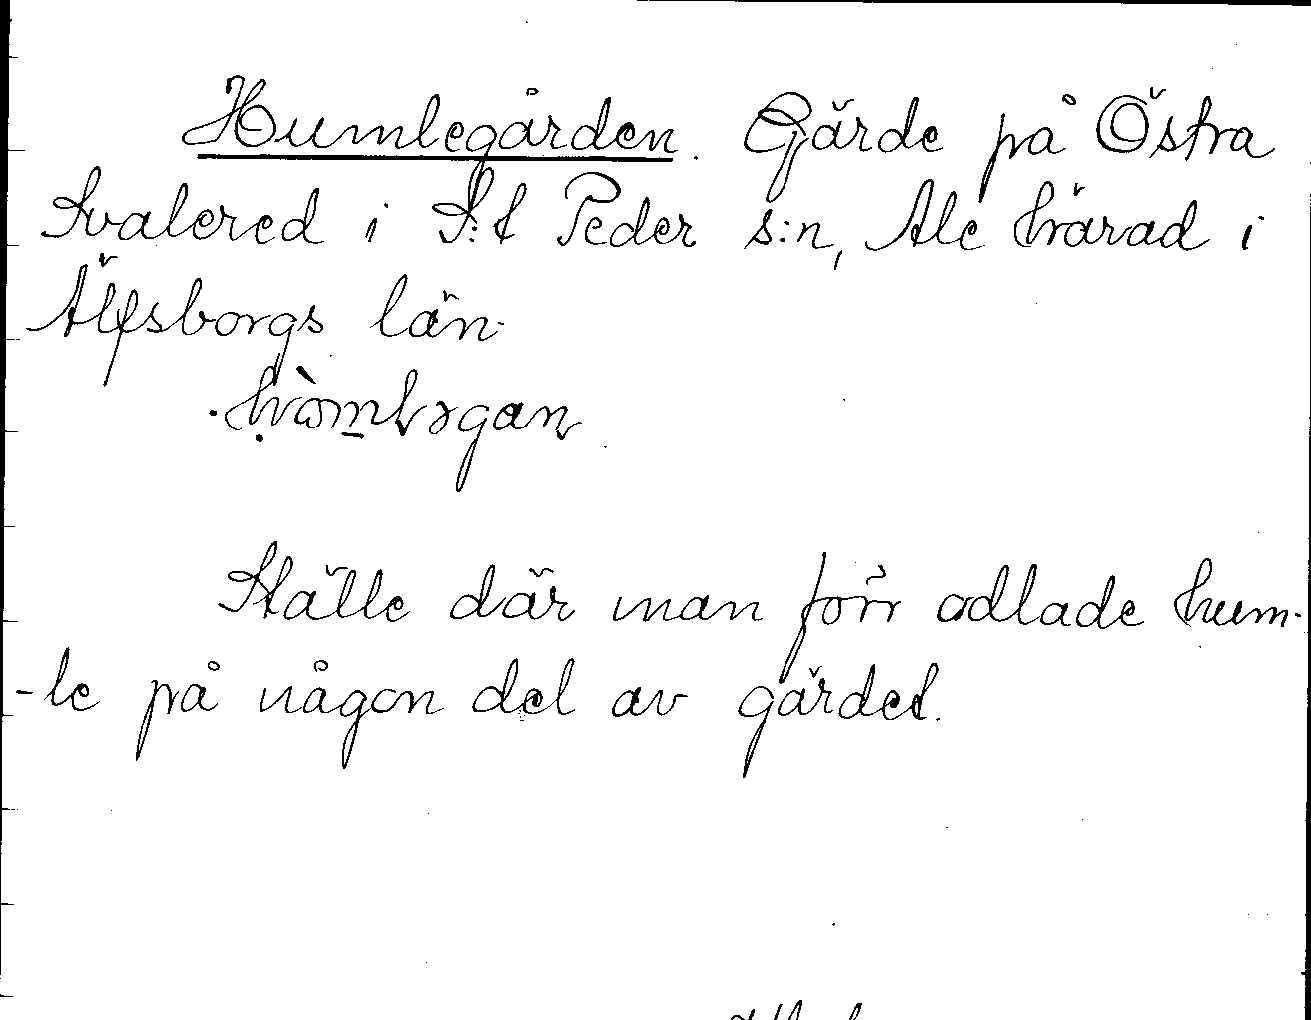 Humlegården. Gärde på Östra
Svalered i S:t Peder s:n, Ale härad i
Älfsborgs län.
Ställe där man förr odlade hum-
-le på någon del av gärdet.